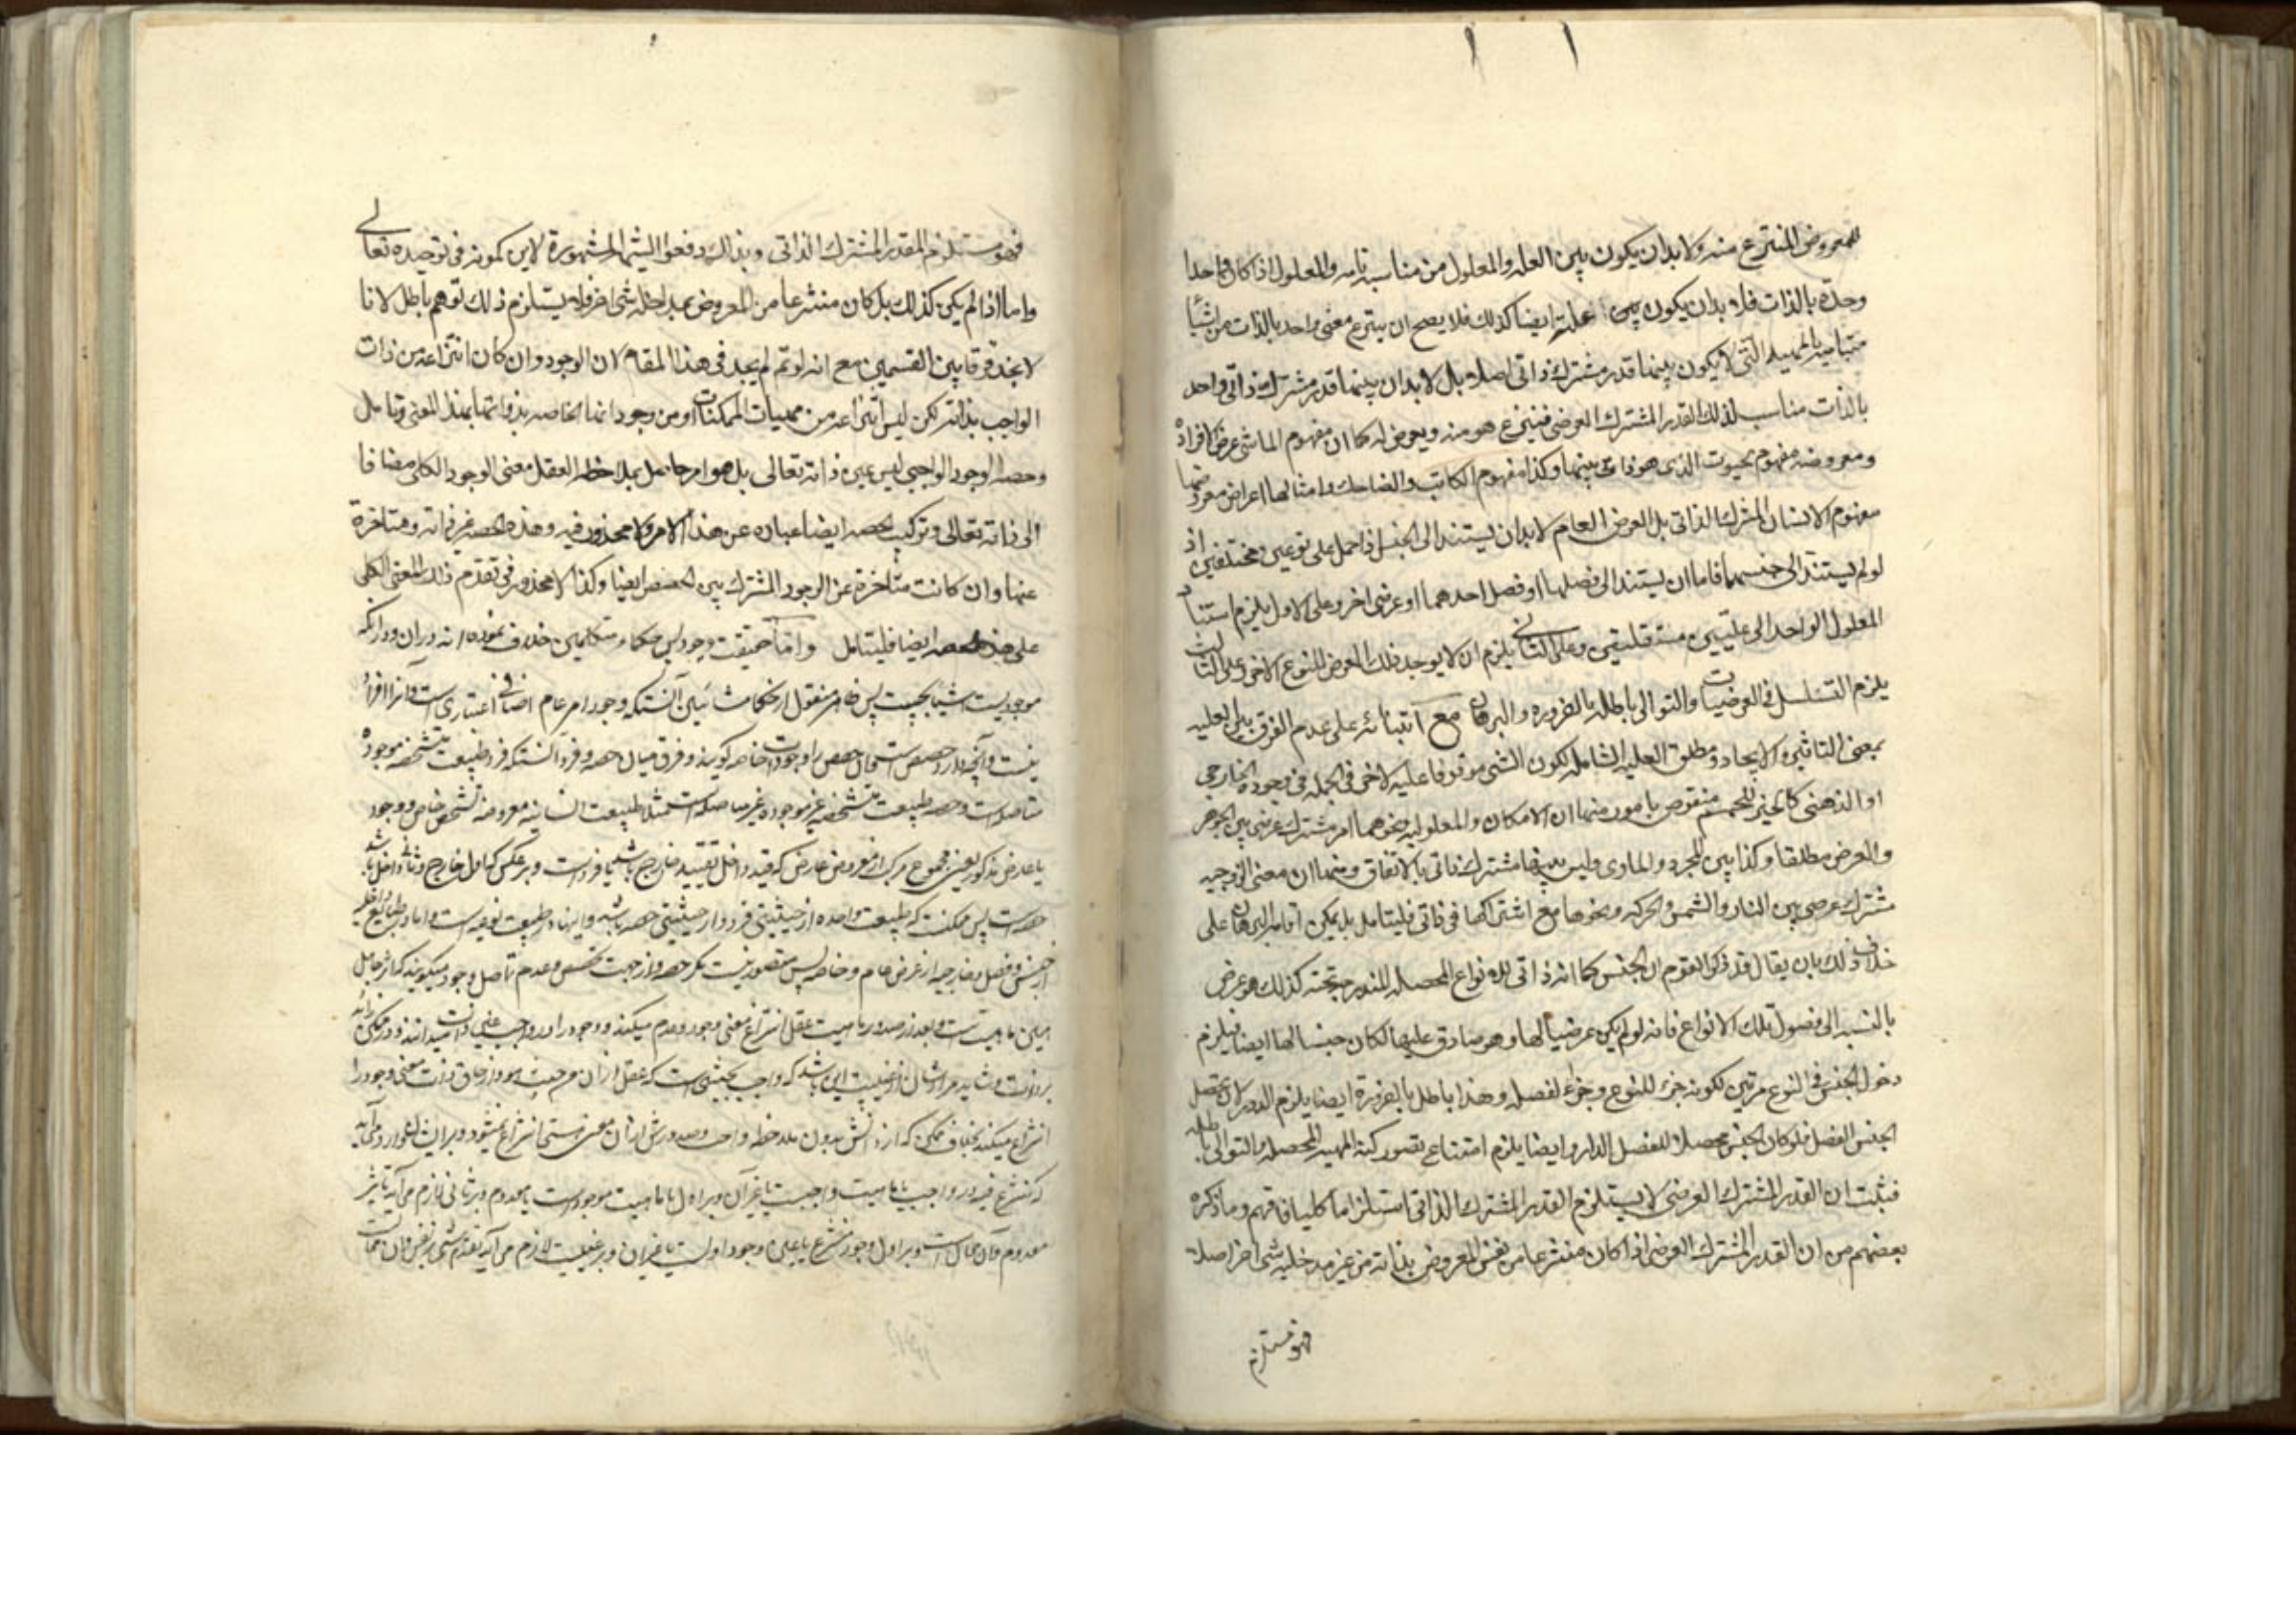 للمعروض المنتزع منه ولا بد ان يكون بين العلة والمعلول من مناسبة تامة والمعلول اذا كان واحدا
وحدة بالذات فلا بد ان يكون علته ايضا كذلك فلا يصح ان ينتزع معنى واحد بالذات من اشياء
متباينة بالمهية التى لا يكون بينها قدر مشترك ذاتى اصلا بل لا بد ان بينها قدر مشترك ذاتى واحد
بالذات مناسب لذلك القدر المشترك العرضى فينتزع هو منه ويعرض له كما ان مفهوم الماشى عرض لافراده
ومعروضه مفهوم الذى هو ذاتى بينها وكذا مفهوم الكاتب والضاحك وامثالها اعراض معروضها
مفهوم الانسان المشترك الذاتى بل العرض العام لا بد ان يستند الى الجنس اذا حمل على نوعين مختلفين اذ
لو لم يستند الى جنسهما فاما ان يستند الى فصلهما او فصل احدهما او عرضى اخر وعلى الاول يلزم استناد
المعلول الواحد الى علتين مستقلتين وعلى الثانى يلزم ان لا يوجد ذلك العرض للنوع الاخر وعلى الثالث
يلزم التسلسل فى العرضيات والتوالى باطلة بالضرورة والبرهان مع ابتنائه على عدم الفرق بين العلية
بمعنى التاثير والايجاد ومطلق العلية الشاملة لكون الشى موقوفا عليه لاخر فى الجملة فى وجوده الخارجى
او الذهنى كالحيز للجسم منقوض بامور منها ان الامكان والمعلولية ونحوهما امر مشترك عرضى بين الجوهر
والعرض مطلقا وكذا بين المجرد والمادى وليس بينهما مشترك ذاتى بالاتفاق ومنها ان معنى الزوجية
مشترك عرضى بين النار والشمس والحركة ونحوها مع اشتراكها فى ذاتى فليتامل بل يمكن اقامة البرهان على
خلاف ذلك بان يقال قد ذكر القوم ان الجنس كما انه ذاتى للانواع المحصلة المندرجة تحته كذلك هو عرضى
بالنسبة الى فصول تلك الانواع فانه لو لم يكن عرضيا لها وهو صادق عليها لكان جنسا لها ايضا فيلزم
دخول الجنس فى النوع مرتين لكونه جزء للنوع وجزء لفصله وهذا باطل بالضرورة ايضا يلزم الدور لان محصل
الجنس الفصل فلو كان الجنس محصلا للفصل لدار وايضا يلزم امتناع تصور كنه المهية المحصلة والتوالى باطلة
فثبت ان القدر المشترك العرضى لا يستلزم القدر المشترك الذاتى استلزاما كليا فافهم وما ذكره
بعضهم من ان القدر المشترك العرضى اذا كان منتزعا من نفس المعروض بذاته من غير مدخلية شى اخر اصلا
فهو مستلزم
فهو مستلزم القدر المشترك الذاتى وبذالك دفعوا الشبهة المشهورة لابن كمونه فى توحيده تعالى
واما اذا لم يكن كذلك بل كان منتزعا من المعروض بمداخلة شى اخر فلا يستلزم ذلك توهم باطل لانا
لا نجد فرقا بين القسمين مع انه لو تم لم يجد فى هذا المقام لان الوجود وان كان انتزاعه من ذات
الواجب بذاته لكن ليس انتزاعه من مهيات الممكنات او من وجوداتها الخاصة بذواتها بهذا المعنى وتامل
وحصة الوجود الواجبى ليس عين ذاته تعالى بل هو امر حاصل بملاحظة العقل معنى الوجود الكلى مضافا
الى ذاته تعالى وتركيب الحصة ايضا عبارة عن هذا الامر ولا محذور فيه وهذه الحصة غير ذاته ومتاخرة
عنها وان كانت متاخرة عن الوجود المشترك بين الحصص ايضا وكذا لا محذور فى تقدم ذلك المعنى الكلى
على هذه الحصة ايضا فليتامل واما حقيقت وجود پس حكماء متكلمين خلاف نموده اند در ان ودر آنكه
موجوديت اشيا بچيست پس ظاهر منقول از حكماء مشائين آنستكه وجود امر عام اضافى اعتبارى است وآنرا افراد
نيست وآنچه دارد حصص است همان حصص را وجودات خاصه گويند وفرق ميان حصه وفرد آنستكه فرد طبيعت متشخصه موجوده
متاصله است وحصه طبيعت متشخصه غير موجوده غير متاصله است مثلا طبيعت انسانيه معروضه تشخص خاص ووجود
يا عارض مذكور يعنى مجموع مركب از معروض عارض كه قيد داخل تقييد خارج باشد يا فرد است وبر عكس كه اول خارج وثانى داخل باشد
حصه است پس ممكنست كه طبيعت واحده از حيثيتى فرد واز حيثيتى حصه باشد واينها در طبيعت نوعيه است واما در طبايع داخليه
از جنس وفصل وخارجيه از عرض عام وخاصه پس متصور نيست مگر حصه واز جهت تخصص وعدم تاصل وجود ميگويند كه اثر جاعل
همين ماهيت است وبعد از صدور ماهيت عقل انتزاع معنى وجود وعدم ميكند ووجود را در واجب عين ذات ميدانند ودر ممكن زائد
بر ذات وشايد مراد شان از عينيت اين باشد كه واجب بحيثى است كه عقل از ان من حيث هو واز حاق ذات معنى وجود را
انتزاع ميكند بخلاف ممكن كه از ذاتش بدون ملاحظه واجب وصدورش از ان معنى هستى انتزاع نميشود وبر ان وارد مى آيد
كه منتزع فيه در واجب يا ماهيت واجبست يا غير آن وبر اول يا ماهيت موجود است يا معدوم وبر ثانى لازم مى آيد تاثير
معدوم وآن محال است وبر اول وجود منتزع يا عين وجود اولست يا غير ان وبر عينيت لازم مى آيد تقدم شى بر نفس وان محالست